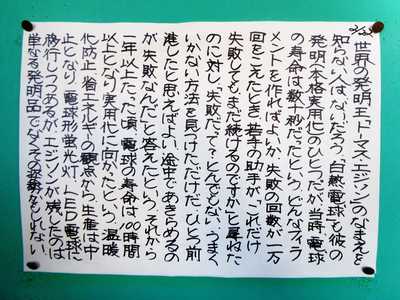 世界の発明王「トーマス・エジソン」のなまえを
知らない人はないだろう。「白熱電球」も彼の
発明(本格実用化)のひとつだが、当時、電球
の寿命は数十秒だったという。どんなフィラ
メントを作ればよいか、失敗の回数が一万
回をこえたとき、若手の助手が「これだけ
失敗しても、まだ続けるのですか」と尋ねた
のに対し「失敗だって?とんでもない。うまく
いかない方法を見つけただけだ。ひとつ前
進したと思えばよい。途中であきらめるの
が失敗なんだ」と答えたという。それから
一年以上たった頃、電球の寿命は100時間
以上となり実用化に向かったという。温暖
化防止、省エネルギーの観点から、生産は中
止となり、電球形蛍光灯、LED電球に
移行しつつあるが、エジソンが残したのは
単なる発明品でなくその姿勢かもしれない。